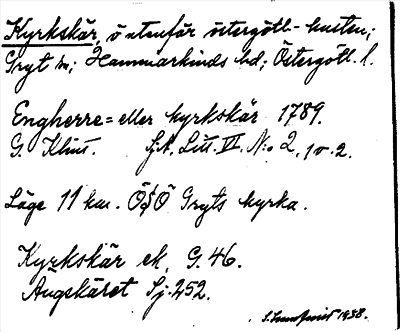 Kyrkskär, ö utenför östergötl. kusten;
Gryt sn; Hammarkinds hd; Östergötl. l.
Engherre= eller kyrkskär 1789.
G. Klint. f.A. Litt. VI. N:o 2. 1 o. 2.
Läge 11 km. ÖSÖ Gryts kyrka.
Kyrkskär ek. G. 46.
Ängskäret Sj. 252.
1938.